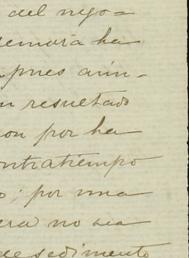 del nego=
demora ha
pues aun-
un resultado
con por ha
contratiempo
o; por una
era no sea
desedimento